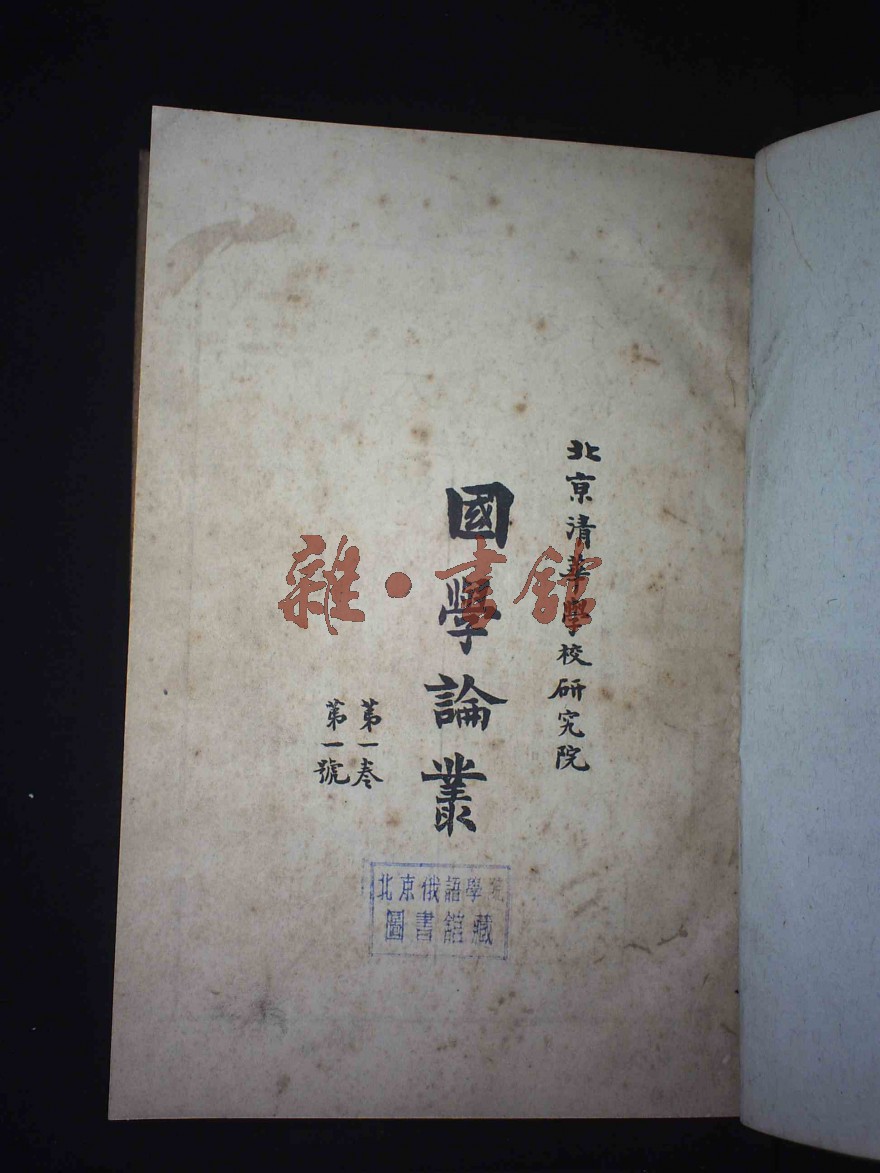 北京清華學校研究院
國學論叢
第一卷
第一號
雜·書館
北京俄語學院
圖書館藏